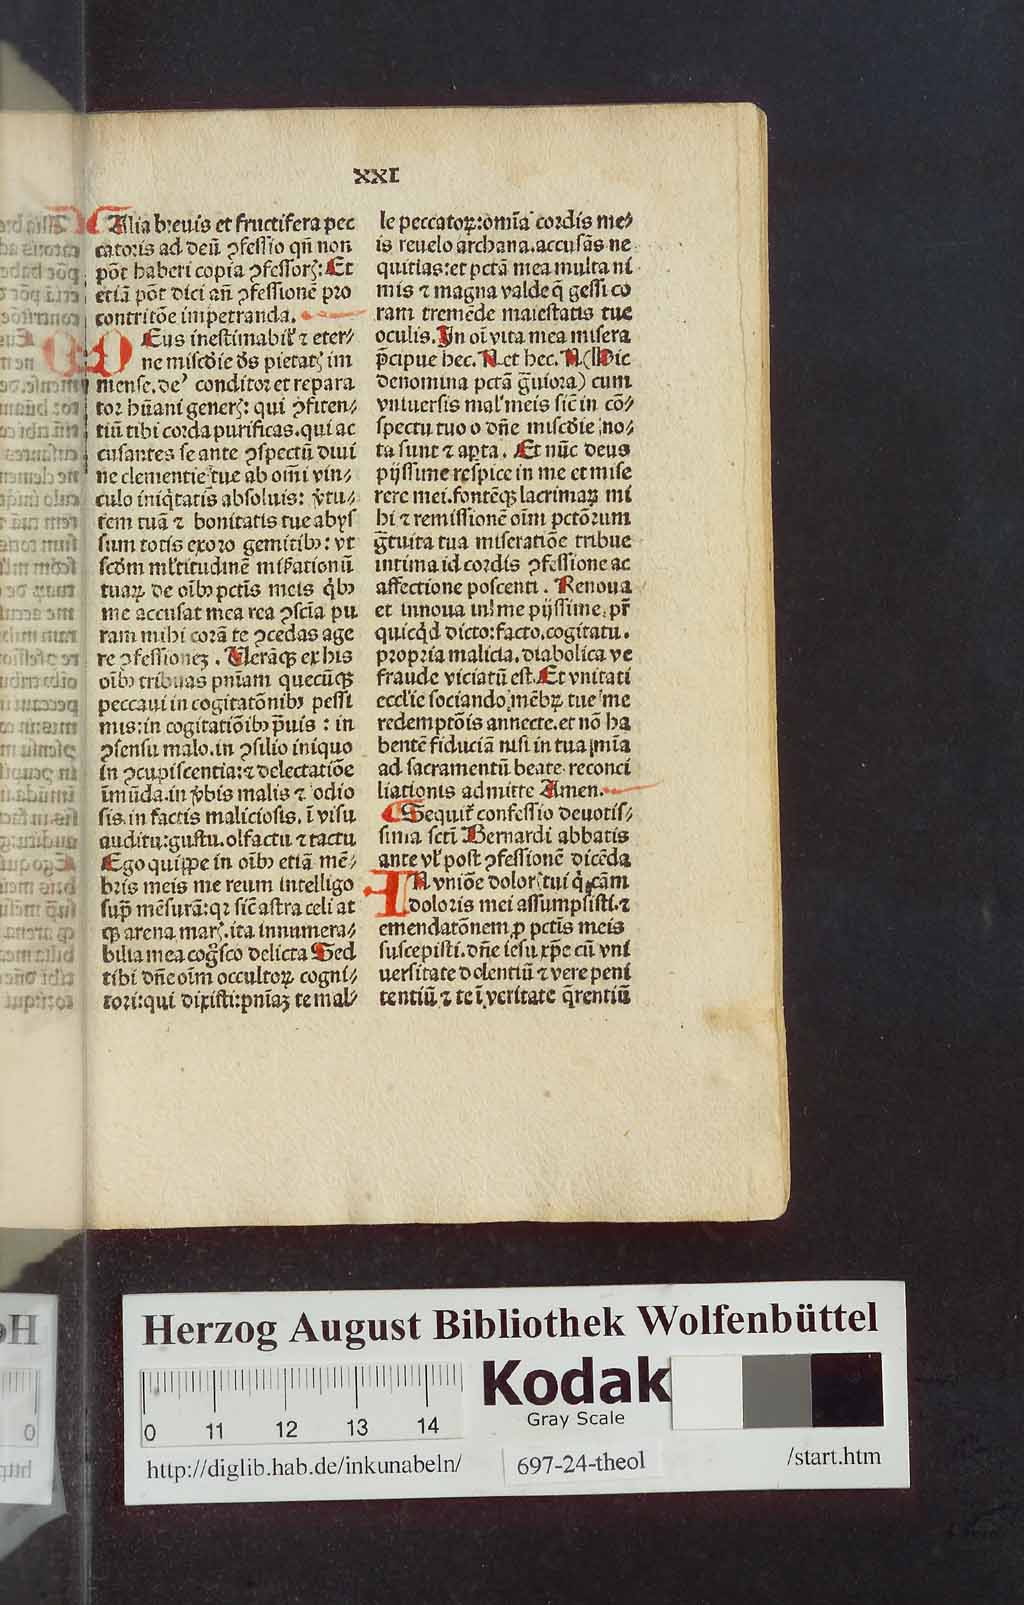 XXI
Alia breuis et fructifera pec
catoris ad deū ꝯfessio qn̄ non
pōt haberi copia ꝯfessorꝭ: Et
etiā pōt dici an̄ ꝯfessionē pro
contritōe impetranda.
DEus inestimabilꝭ ⁊ eter⸗
ne miscd̄ie d̄s pietatꝭ im
mense. deꝰ conditor et repara
tor hūani generꝭ: qui ꝯfiten⸗
tiū tibi corda purificas. qui ac
cusantes se ante ꝯspectū diui
ne clementie tue ab om̄i vin⸗
culo iniq̇tatis absoluis: v̇tu⸗
tem tuā ⁊ bonitatis tue abys
sum totis exoro gemitibꝫ: vt
scd̄m ml̓titudinē mis̓ationū
tuaꝝ de oībꝫ pctīs meis q̇bꝫ
me accusat mea rea ꝯscīa pu
ram mihi corā te ꝯcedas age
re ꝯfessionez. Uerāqꝫ ex his
oībꝫ tribuas pnīam quecūqꝫ
peccaui in cogitatōnibꝫ pessi
mis: in cogitatiōibꝫ p̄uis: in
ꝯsensu malo. in ꝯsilio iniquo
in ꝯcupiscentia: ⁊ delectatiōe
īmūda. in v̓bis malis ⁊ odio
sis. in factis maliciosis. ī visu
auditu: gustu. olfactu ⁊ tactu
Ego quippe in oībꝫ etiā mē⸗
bris meis me reum intelligo
sup̄ mēsurā: qꝛ sic̄ astra celi at
qꝫ arena marꝭ. ita innumera⸗
bilia mea cog̓sco delicta Sed
tibi dn̄e oīm occultoꝝ cogni⸗
tori: qui dixisti: pnīaꝫ te mal⸗
le peccatoꝝ: om̄ia cordis me⸗
is reuelo archana. accusās ne
quitias: et pctā mea multa ni
mis ⁊ magna valde q̄ gessi co
ram tremēde maiestatis tue
oculis. In oī vita mea misera
p̄cipue hec. N. et hec. N. (Hic
denomina pctā g̓uiora) cum
vniuersis mal̓ meis sic̄ in cō⸗
spectu tuo o dn̄e miscd̄ie no⸗
ta sunt ⁊ apta. Et nūc deus
pijssime respice in me et mise
rere mei. fontēqꝫ lacrimaꝝ mi
hi ⁊ remissionē oīm pctōrum
g̓tuita tua miseratiōe tribue
intima id cordis ꝯfessione ac
affectione poscenti. Renoua
et innoua in me pijssime pr̄
quicq̇d dicto: facto. cogitatu.
propria malicia. diabolica ve
fraude viciatū est. Et vnitati
eccl̓ie sociando mēbꝝ tue me
redemptōis annecte. et nō ha
bentē fiduciā nisi in tua mīa
ad sacramentū beate reconci
liationis admitte Amen.
Sequit̓ confessio deuotis⸗
sima sctī Bernardi abbatis
ante vl̓ post ꝯfessionē dicēda
IN vniōe dolorꝭ tui q̇ cām
doloris mei assumpsisti. ⁊
emendatōnem ꝓ pctīs meis
suscepisti. dn̄e iesu xp̄e cū vni
uersitate dolentiū ⁊ vere peni
tentiū ⁊ te ī veritate q̄rentiū
Herzog August Bibliothek Wolfenbüttel
Kodak
Gray Scale
0 11 12 13 14
http://diglib.hab.de/inkunabeln/
697-24-theol
/start.htm